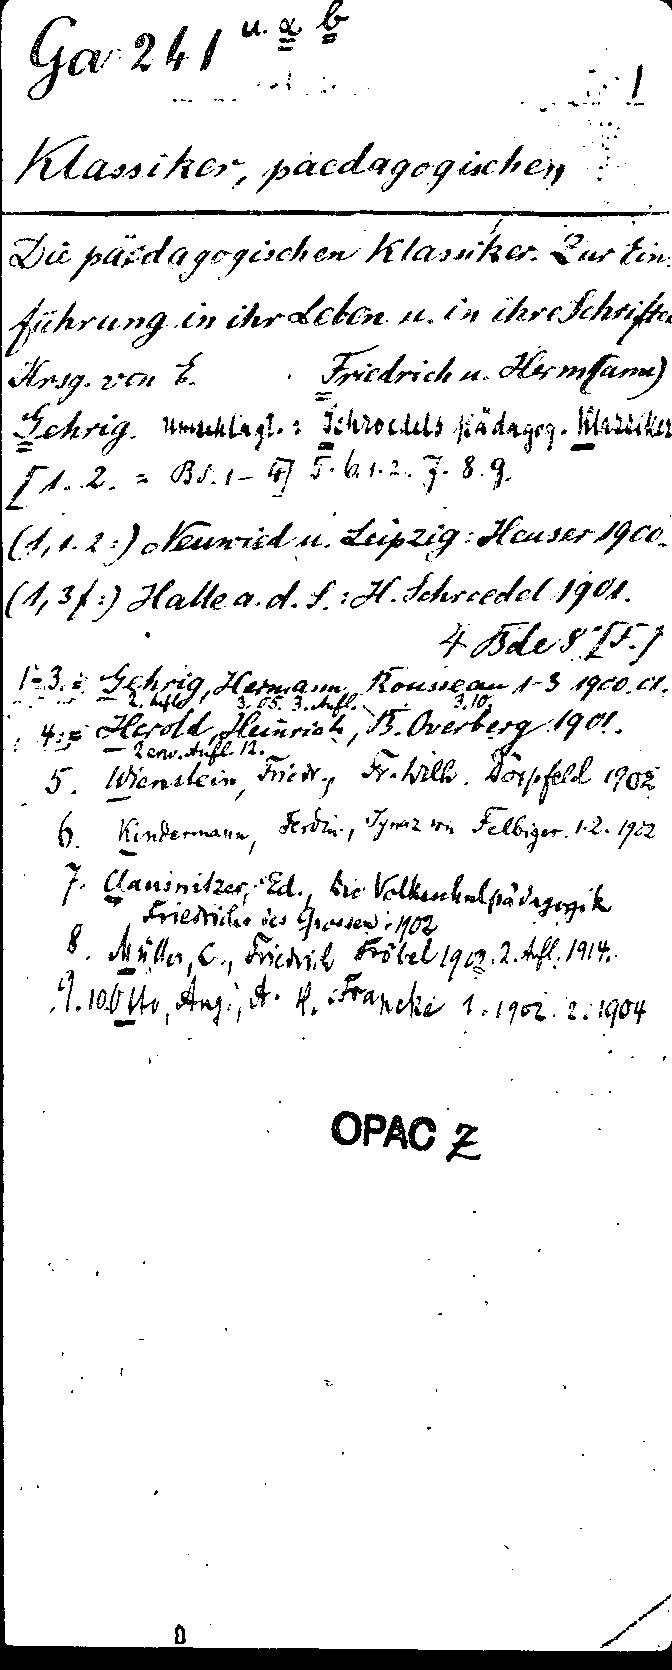 Ga 241 u. a b
1
Klassiker, paedagogischen
Die pædagogischen Klassiker. Zur Ein-
führung in ihr Leben u. in ihre Schriften
Hrsg. von E. Friedrich u. Herm(ann)
Gehrig. Umschlagt.: Schroedels pädagog. Klassiker
[1. 2. = Bd. 1-4] 5. 6,1.2. 7. 8. 9.
(1,1.2:) Neuwied u. Leipzig: Heuser 1900.
(1,3f:) Halle a. d. S.: H. Schroedel 1901.
4 Bde 8° [F.]
1-3.= Gehrig, Hermann, Rousseau 1-3 1900.01.
2. Aufl. 3. 05. 3. Aufl. 3.10.
4.= Herold, Heinrich, B. Overberg 1901.
2 erw. Aufl. 12.
5. Wienstein, Friedr., Fr. Wilh. Dörpfeld 1902
6. Kindermann, Ferdin., Ignaz von Felbiger. 1.2. 1902
7. Clausnitzer, Ed., Die Volksschulpädagogik
Friedrichs des Grossen. 1902
8. Müller, C., Friedrich Fröbel 1902. 2. Afl. 1914.
9.10 Otto, Aug., A. H. Francke 1. 1902. 2. 1904
OPAC Z